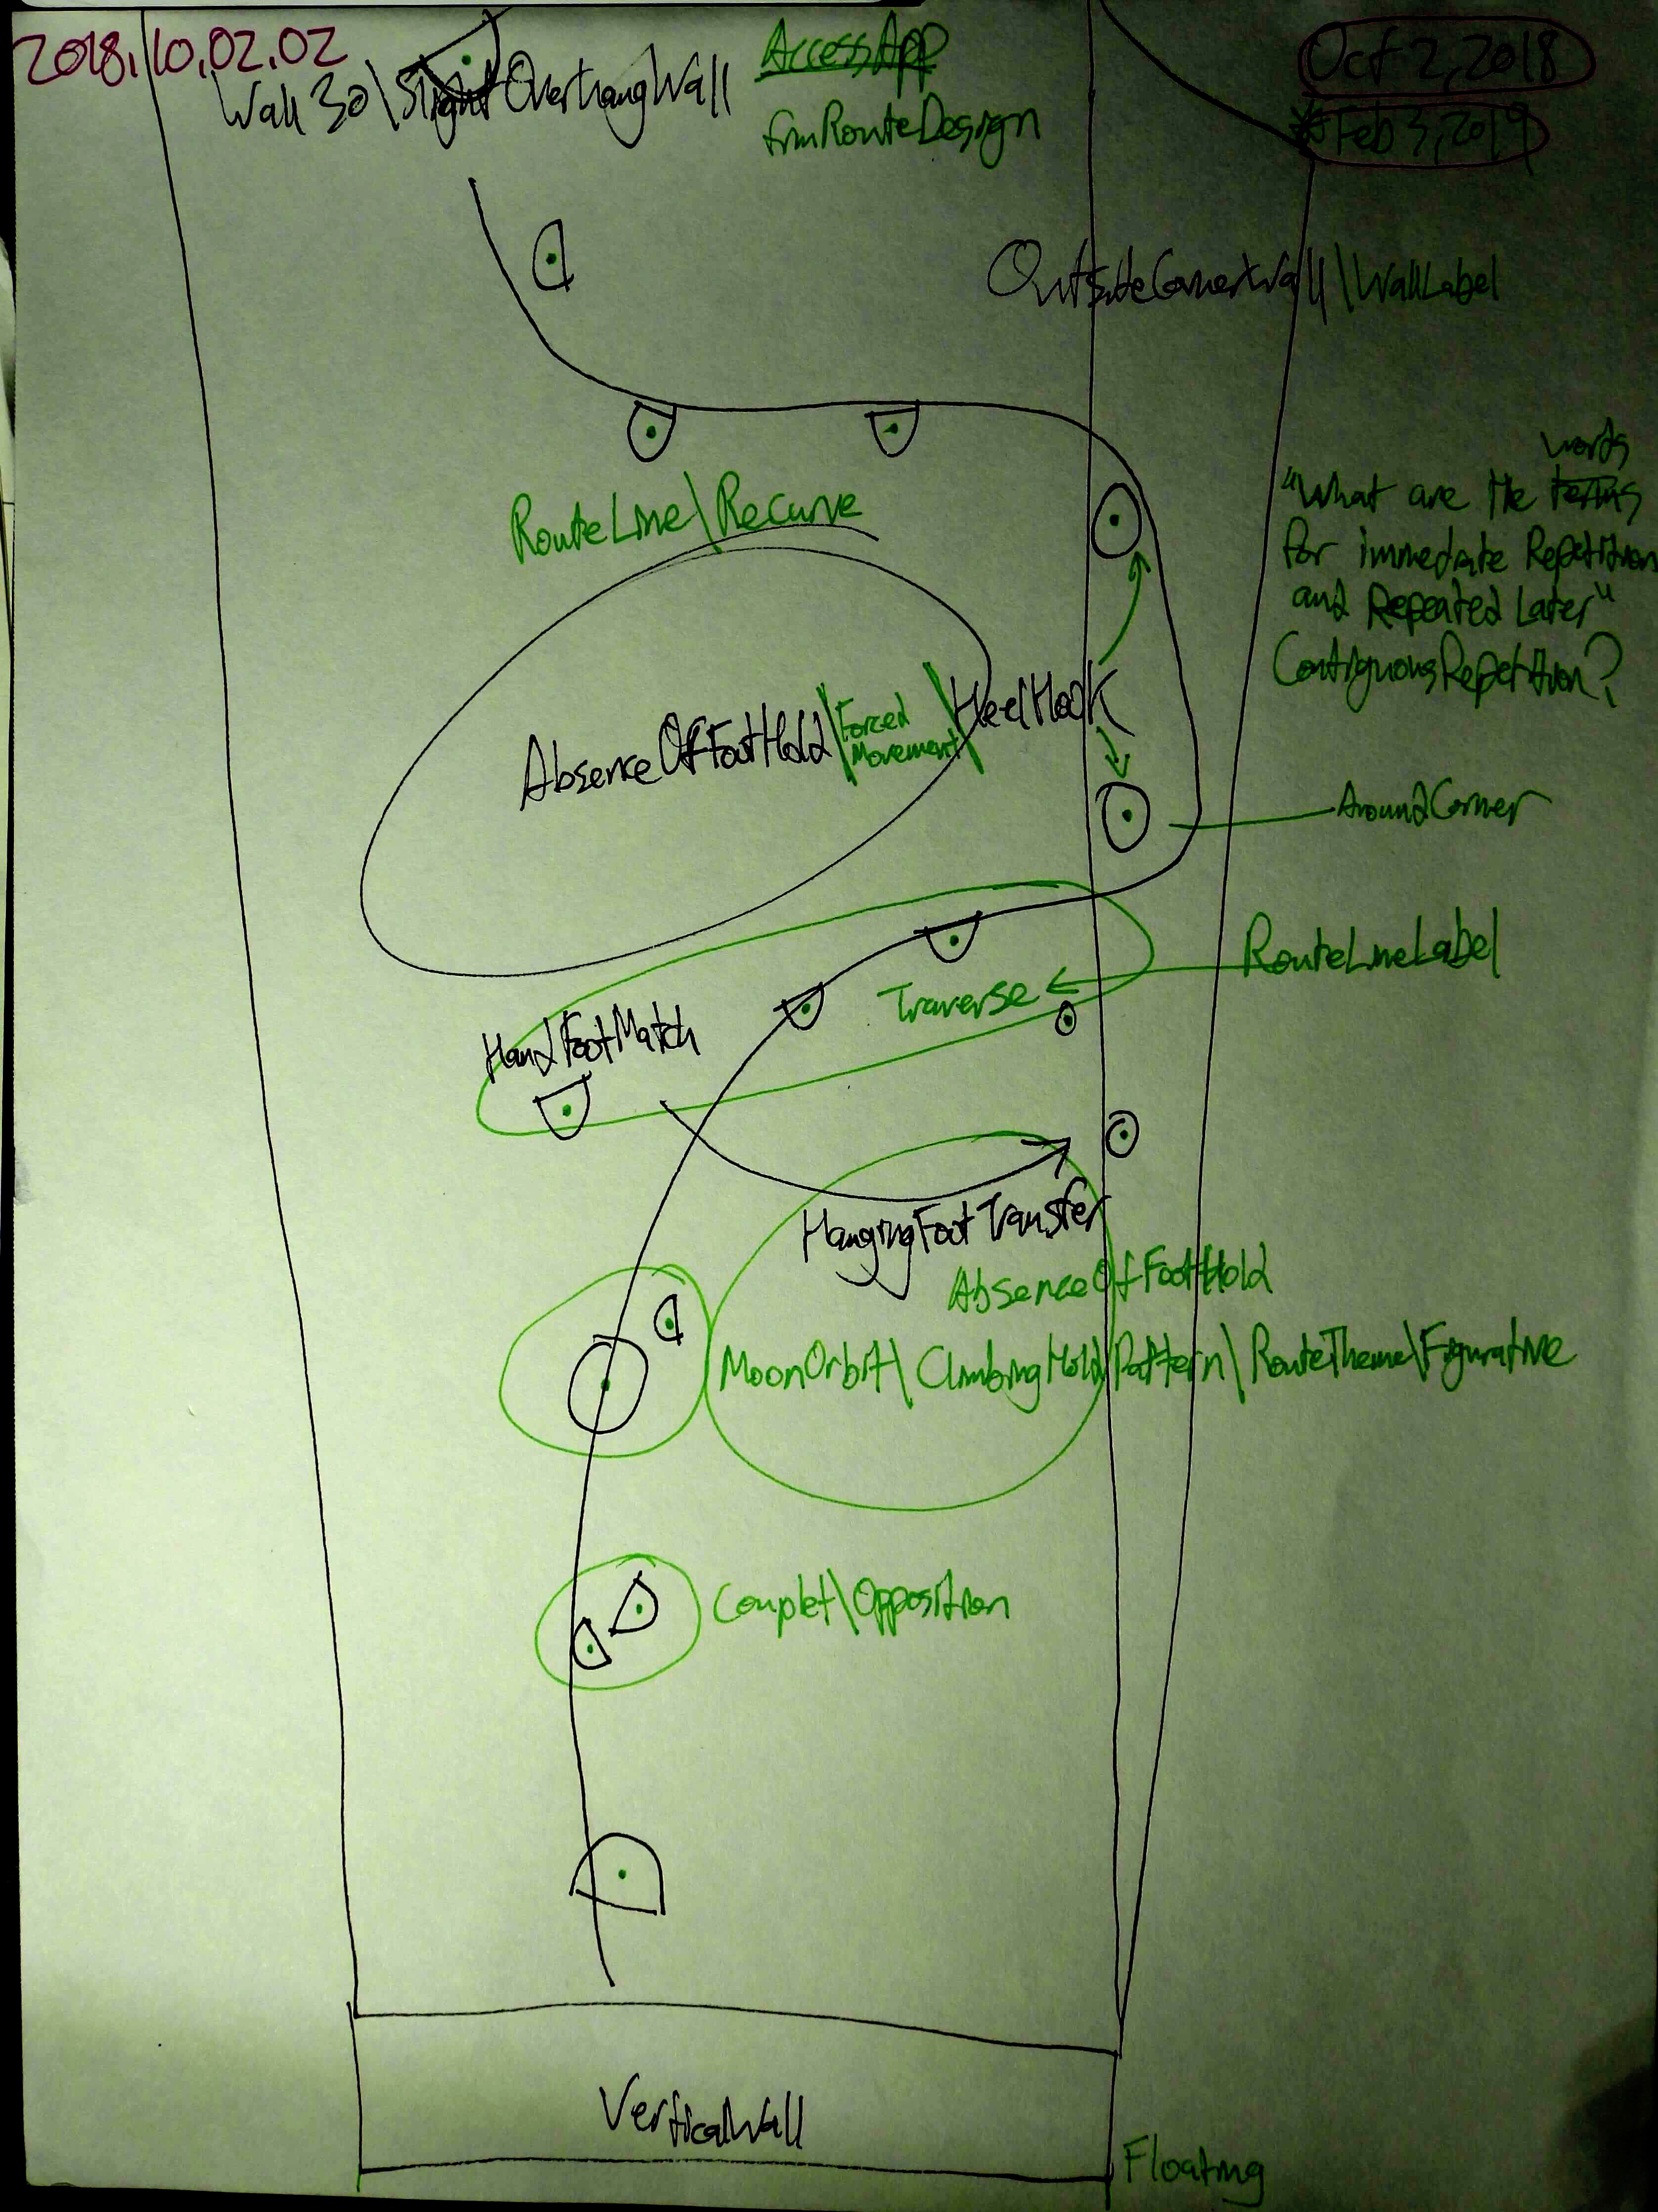 2018.10.02.02
Wall 30\Slight OverhangWall
AccessApp
frmRouteDesign
Oct 2, 2018
*Feb 3, 2019
OutsideCornerWall\WallLabel
words
"What are the terms
for immediate Repetition
and Repeated Later"
ContiguousRepetition?
RouteLine\Recurve
AbsenceOfFootHold\Forced
Movement\HeelHook
AroundCorner
RouteLineLabel
Traverse
HandFootMatch
HangingFootTransfer
AbsenceOfFootHold
MoonOrbit\ClimbingHoldPattern\RouteTheme\Figurative
Couplet\Opposition
VerticalWall
Floating